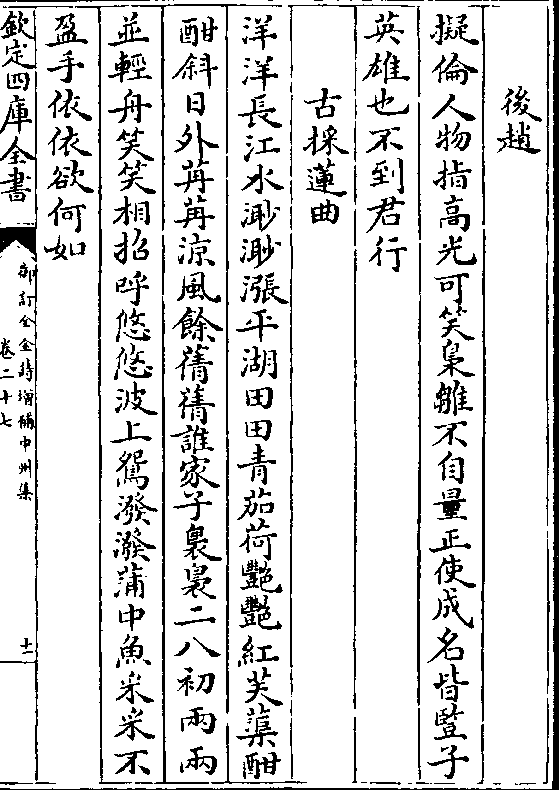 後趙
擬倫人物指高光可笑梟雛不自量正使成名皆豎子
英雄也不到君行
古採蓮曲
洋洋長江水渺渺漲平湖田田青茄荷艷艷紅芙蕖酣
酣斜日外苒苒涼風餘蒨蒨誰家子裊裊二八初兩兩
並輕舟笑笑相招呼悠悠波上鴛潑潑蒲中魚采采不
盈手依依欲何如
欽定四庫全書
御訂全金詩增補中州集
卷二十七
十一